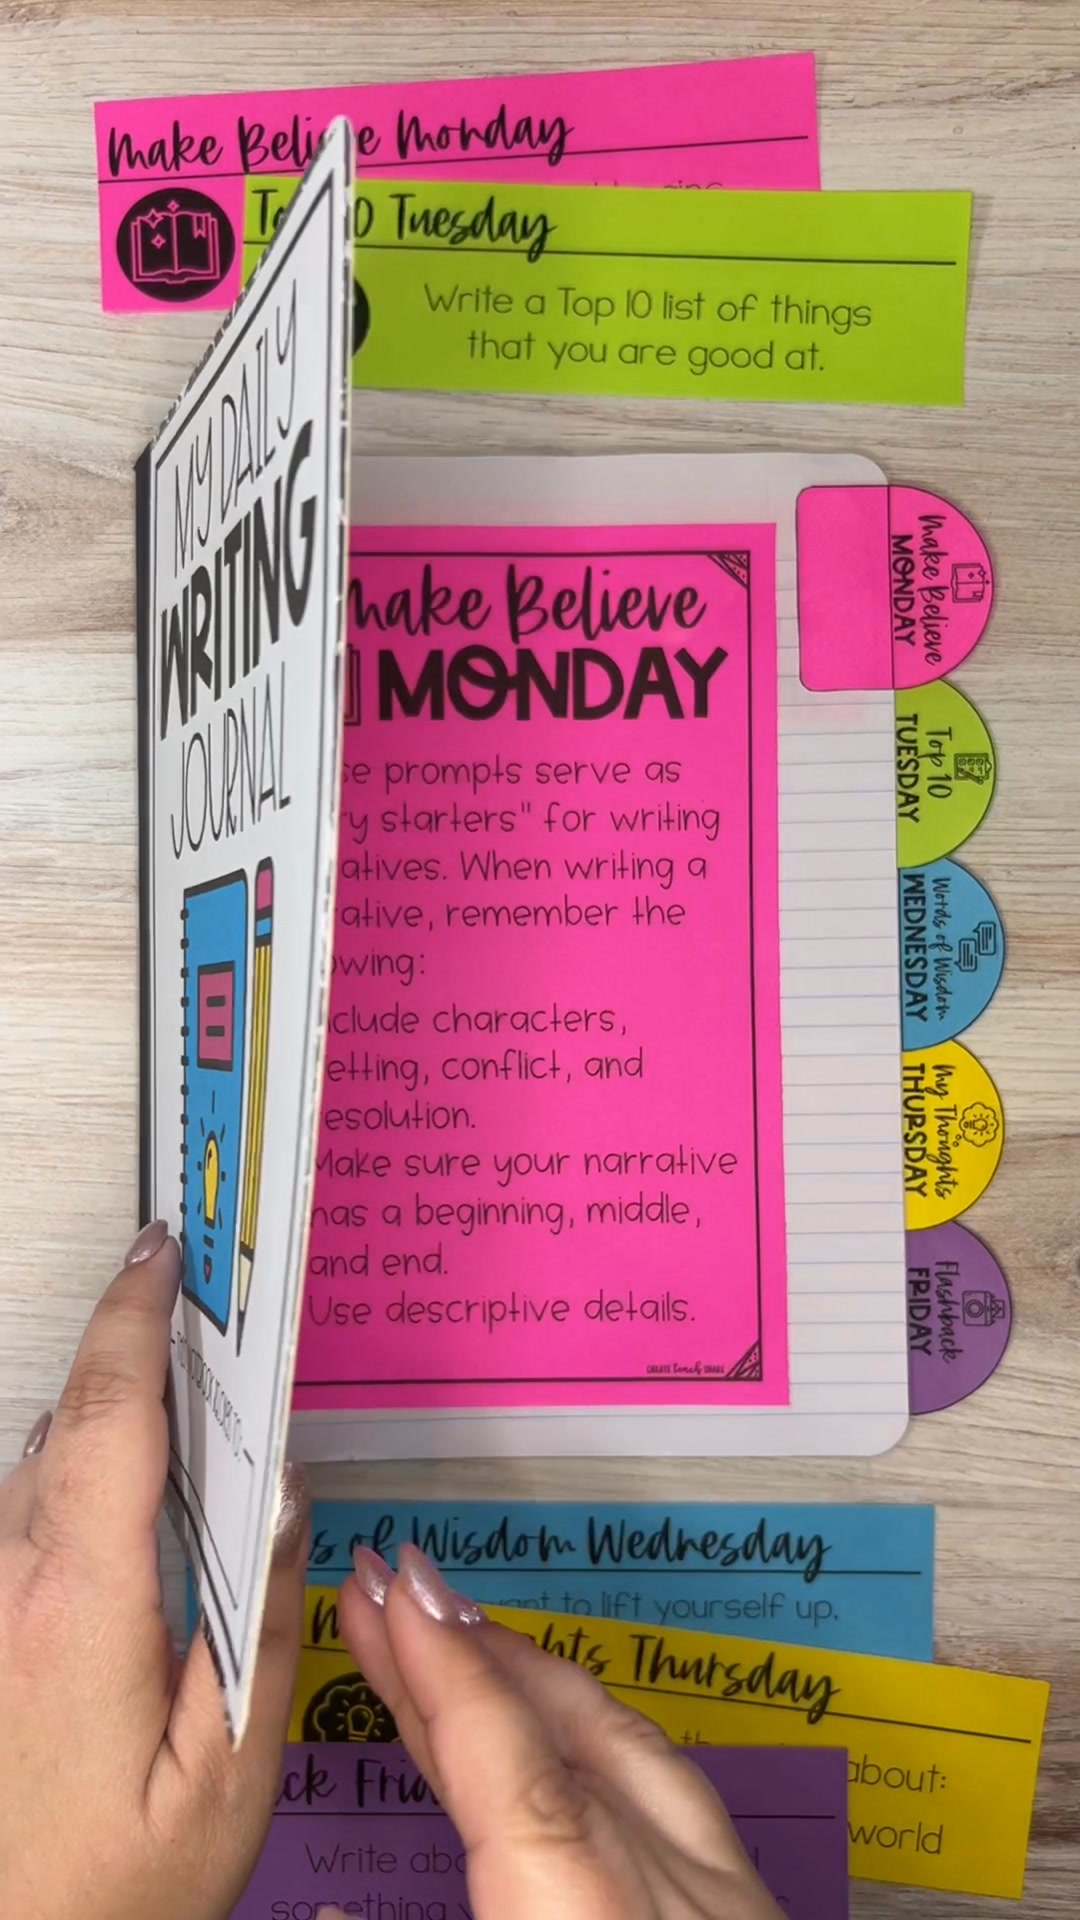 Make Believe Monday
10 Tuesday
Write a Top 10 list of things
that you are good at.
MY DAILY
WRITING
JOURNAL
Make Believe
MONDAY
prompts serve as
starters" for writing
When writing a
remember the
characters,
conflict, and
Make sure your narrative
has a beginning, middle,
and end.
Use descriptive details.
CREATE teach SHARE
Make Believe
MONDAY
Top 10
TUESDAY
Words of Wisdom
WEDNESDAY
My Thoughts
THURSDAY
Flashback
FRIDAY
of Wisdom Wednesday
to lift yourself up.
Thursday
about:
world
Write
something